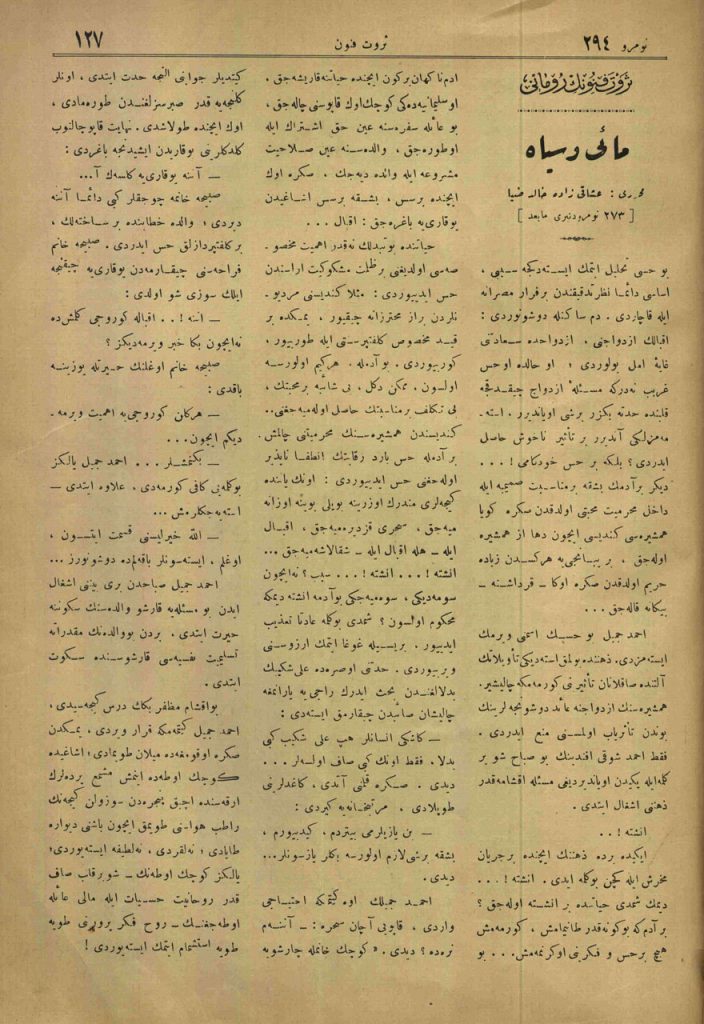 نومرو ٢٩٤
ثروت فنون
١٢٧
ثروت فنونك رومانی
مائی و سیاه
محرری : عشاقی زاده خالد ضیا
[ ٢٧٣ نومرودنبری مابعد ]
بو حسی تحلیل ایتمك ایسته‌دكجه سببی ،
اساسی دائما نظر تدقیقندن برفرار مصرانه
ایله قاچاردی . دم ساكنله دوشونوردی :
اقبالك ازدواجنی . ازدواجده سعادتنی
غایهٔ امل بولوردی ؛ او حالده اوحس
غریب نه‌دركه مسئلهٔ ازدواج چیقدقجه
قلبنده حدته بكزر برشی اویاندیرر . استه‌
مه‌زلكی آندیرر بر تأثیر ناخوش حاصل
ایدردی ؟ بلكه بر حس خودكامی ! ...
دیكر برآدمك بشقه برمناسبت صمیمیه ایله
داخل محرمیت محبتی اولدقدن صكره كویا
همشیره‌سی كندیسی ایچون دها از همشیره
اوله‌جق ، بر یبانجی‌یه هركسدن زیاده
حریم اولدقدن صكره اوكا ـ قرداشنه ـ
بیكانه قاله‌جق ...
احمد جمیل بو حسك اسمنی ویرمك
ایسته‌مزدی. ذهننده بولمق استه‌دیكی تأویلاتك
آلتنده صاقلانان تأثیرنی كورمه‌مكه چالیشیر.
همشیره‌سنك ازدواجنه عائد دوشونجه‌لرینك
بوندن تأثریاب اولمسنی منع ایدردی .
فقط احمد شوقی افندینك بو صباح شو بر
كلمه‌ایله یكیدن اویاندیردیغی مسئله اقشامه‌قدر
ذهنی اشغال ایتدی .
انشته ! . .
ایكیده برده ذهننك ایچنده برجریان
مخرش ایله كچن بوكلمه ایدی . انشته ! ...
دیمك شمدی حیاتنده بر انشته اوله‌جق ؟
برآدم كه بوكونه‌قدر طانیمامش ، كورمه‌مش
هیچ برحس و فكرینی اوكرنمه‌مش ... بو
ادم ناكهان بركون ایچنده حیاتنه قاریشه‌جق .
اوسلیمانیه‌ده‌كی كوچك اوك قاپوسنی چاله‌جق ،
بو عائله سفره‌سنه عین حق اشتراك ایله
اوطوره‌جق ، والده‌سنه عین صلاحیت
مشروعه ایله والده دیه‌جك . صكره اوك
ایچنده برسس ، بشقه برسس اشاغیدن
یوقاری‌یه باغره‌جق : اقبال ...
حیاتنده بوتبدلك نه‌قدر اهمیت مخصو ـ
صه‌سی اولدیغنی برظلمت مشكوكیت اراسندن
حس ایدییوردی : مثلا كندیسنی مردیو ـ
نلردن براز محترزانه چیقیور ، یمكده بر
قید مخصوص كلفتپرستی ایله طورییور ،
كورییوردی . بوآدمله . هركیم اولورسه
اولسون . ممكن دكل . بی شائبه برمحبتك ،
بی تكلف برمناسبتك حاصل اوله‌میه‌جغنی..
كندیسندن همشیره‌سنك محرمیتنی چالمش
برآدمله حس بارد رقابتك انطفا ناپذیر
اوله‌جغنی حس ایدییوردی : اونك یاننده
كیجه‌لری مندرك اوزرینه بویلی بوینه اوزانه
میه‌جق ، سحری قزدیره‌میه‌جق ، اقبال
ایله ـ هله اقبال ایله ـ شقالاشه‌میه‌جق ...
انشته ! ... انشته ! ... سبب ؟ نه‌ایچون
سومه‌دیكی ، سوه‌میه‌جكی بوآدمه انشته دیمكه
محكوم اولسون ؟ شمدی بوكلمه عادتا تعذیب
ایدییور . بریسیله غوغا ایتمك ارزوسنی
ویرییوردی . حدتنی اوصره‌ده علی شكیبك
بدلالغندن بحث ایدرك راجی‌یه یارانمغه
چالیشان صائبدن چیقارمق ایسته‌دی :
— كاشكی انسانلر هپ علی شكیب كبی
بدلا . فقط اونك كبی صاف اولسه‌لر . . .
دیدی . صكره قلمی آتدی . كاغدلرینی
طوپلادی . مرتبخانه‌یه كیردی :
— بن یازیلرمی بیتردم ، كیدییورم ،
بشقه برشی لازم اولورسه بكلر یازسونلر...
دیدی .
احمد جمیلك اوه كیتمكه احتیاجی
واردی . قاپویی آچان سحره : ـ آننه‌م
نره‌ده ؟ دیدی . « كوچك خانمله چارشویه
كیتدیلر جوابنی النجه حدت ایتدی . اونلر
كلنجه‌یه قدر صبرسزلغندن طوره‌مادی ،
اوك ایچنده طولاشدی . نهایت قاپو چالنوب
كلدكلرینی یوقاریدن ایشیدنجه باغردی :
— آننه یوقاری‌یه كلسه‌ك آ...
صبیحه خانمه چوجقلر كبی دائما آننه
دیردی ؛ والده خطابنده برساختەلك ،
بركلفتپردازلق حس ایدردی . صبیحه خانم
فراجه‌سنی چیقارمه‌دن یوقاری‌یه چیقنجه
ایلك سوزی شو اولدی :
— اننه ! . . اقباله كوروجی كلمش‌ده
نه‌ایچون بكا خبر ویرمه‌دیكز ؟
صبیحه خانم اوغلنك حیرتله یوزینه
باقدی :
— هركان كوروجی‌یه اهمیت ویرمه ـ
دیكم ایچون...
— بكنمشلر . . . احمد جمیل یالكز
بوكلمه‌یی كافی كورمه‌دی . علاوه ایتدی —
استه‌یه‌جكلرمش ...
— الله خیرلیسنی قسمت ایتسون ،
اوغلم ، ایسته‌سونلر باقه‌لم‌ده دوشونورز ...
احمد جمیل صباحدن بری بیننی اشغال
ایدن بو مسئله‌یه قارشو والده‌سنك سكوننه
حیرت ایتدی . بردن بووالده‌نك مقدراته
تسلیمیت نفسیه‌سی قارشوسنده سكوت
ایتدی .
بواقشام مظفر بكك درس كیجه‌سیدی .
احمد جمیل كیتمه‌مكه قرار ویردی . یمكدن
صكره اوقومغه‌ده میلان طویمادی ؛ اشاغیده
كوچك اوطه‌ده اینمش مشمع پرده‌لرك
ارقه‌سنده اچیق پنجره‌دن ـ وزولن كیجه‌نك
راطب هواسنی طویمق ایچون باشنی دیواره
طایادی ؛ نه‌لقردی . نه‌لطیفه ایسته‌یوردی؛
یالكز كوچك اوطه‌نك ـ شوبرقاب صاف
قدر روحانیت حسیات ایله مالی عائله
اوطه‌جغنك ـ روح فكر پرورینی طویه
طویه استشمام ایتمك ایسته‌یوردی !